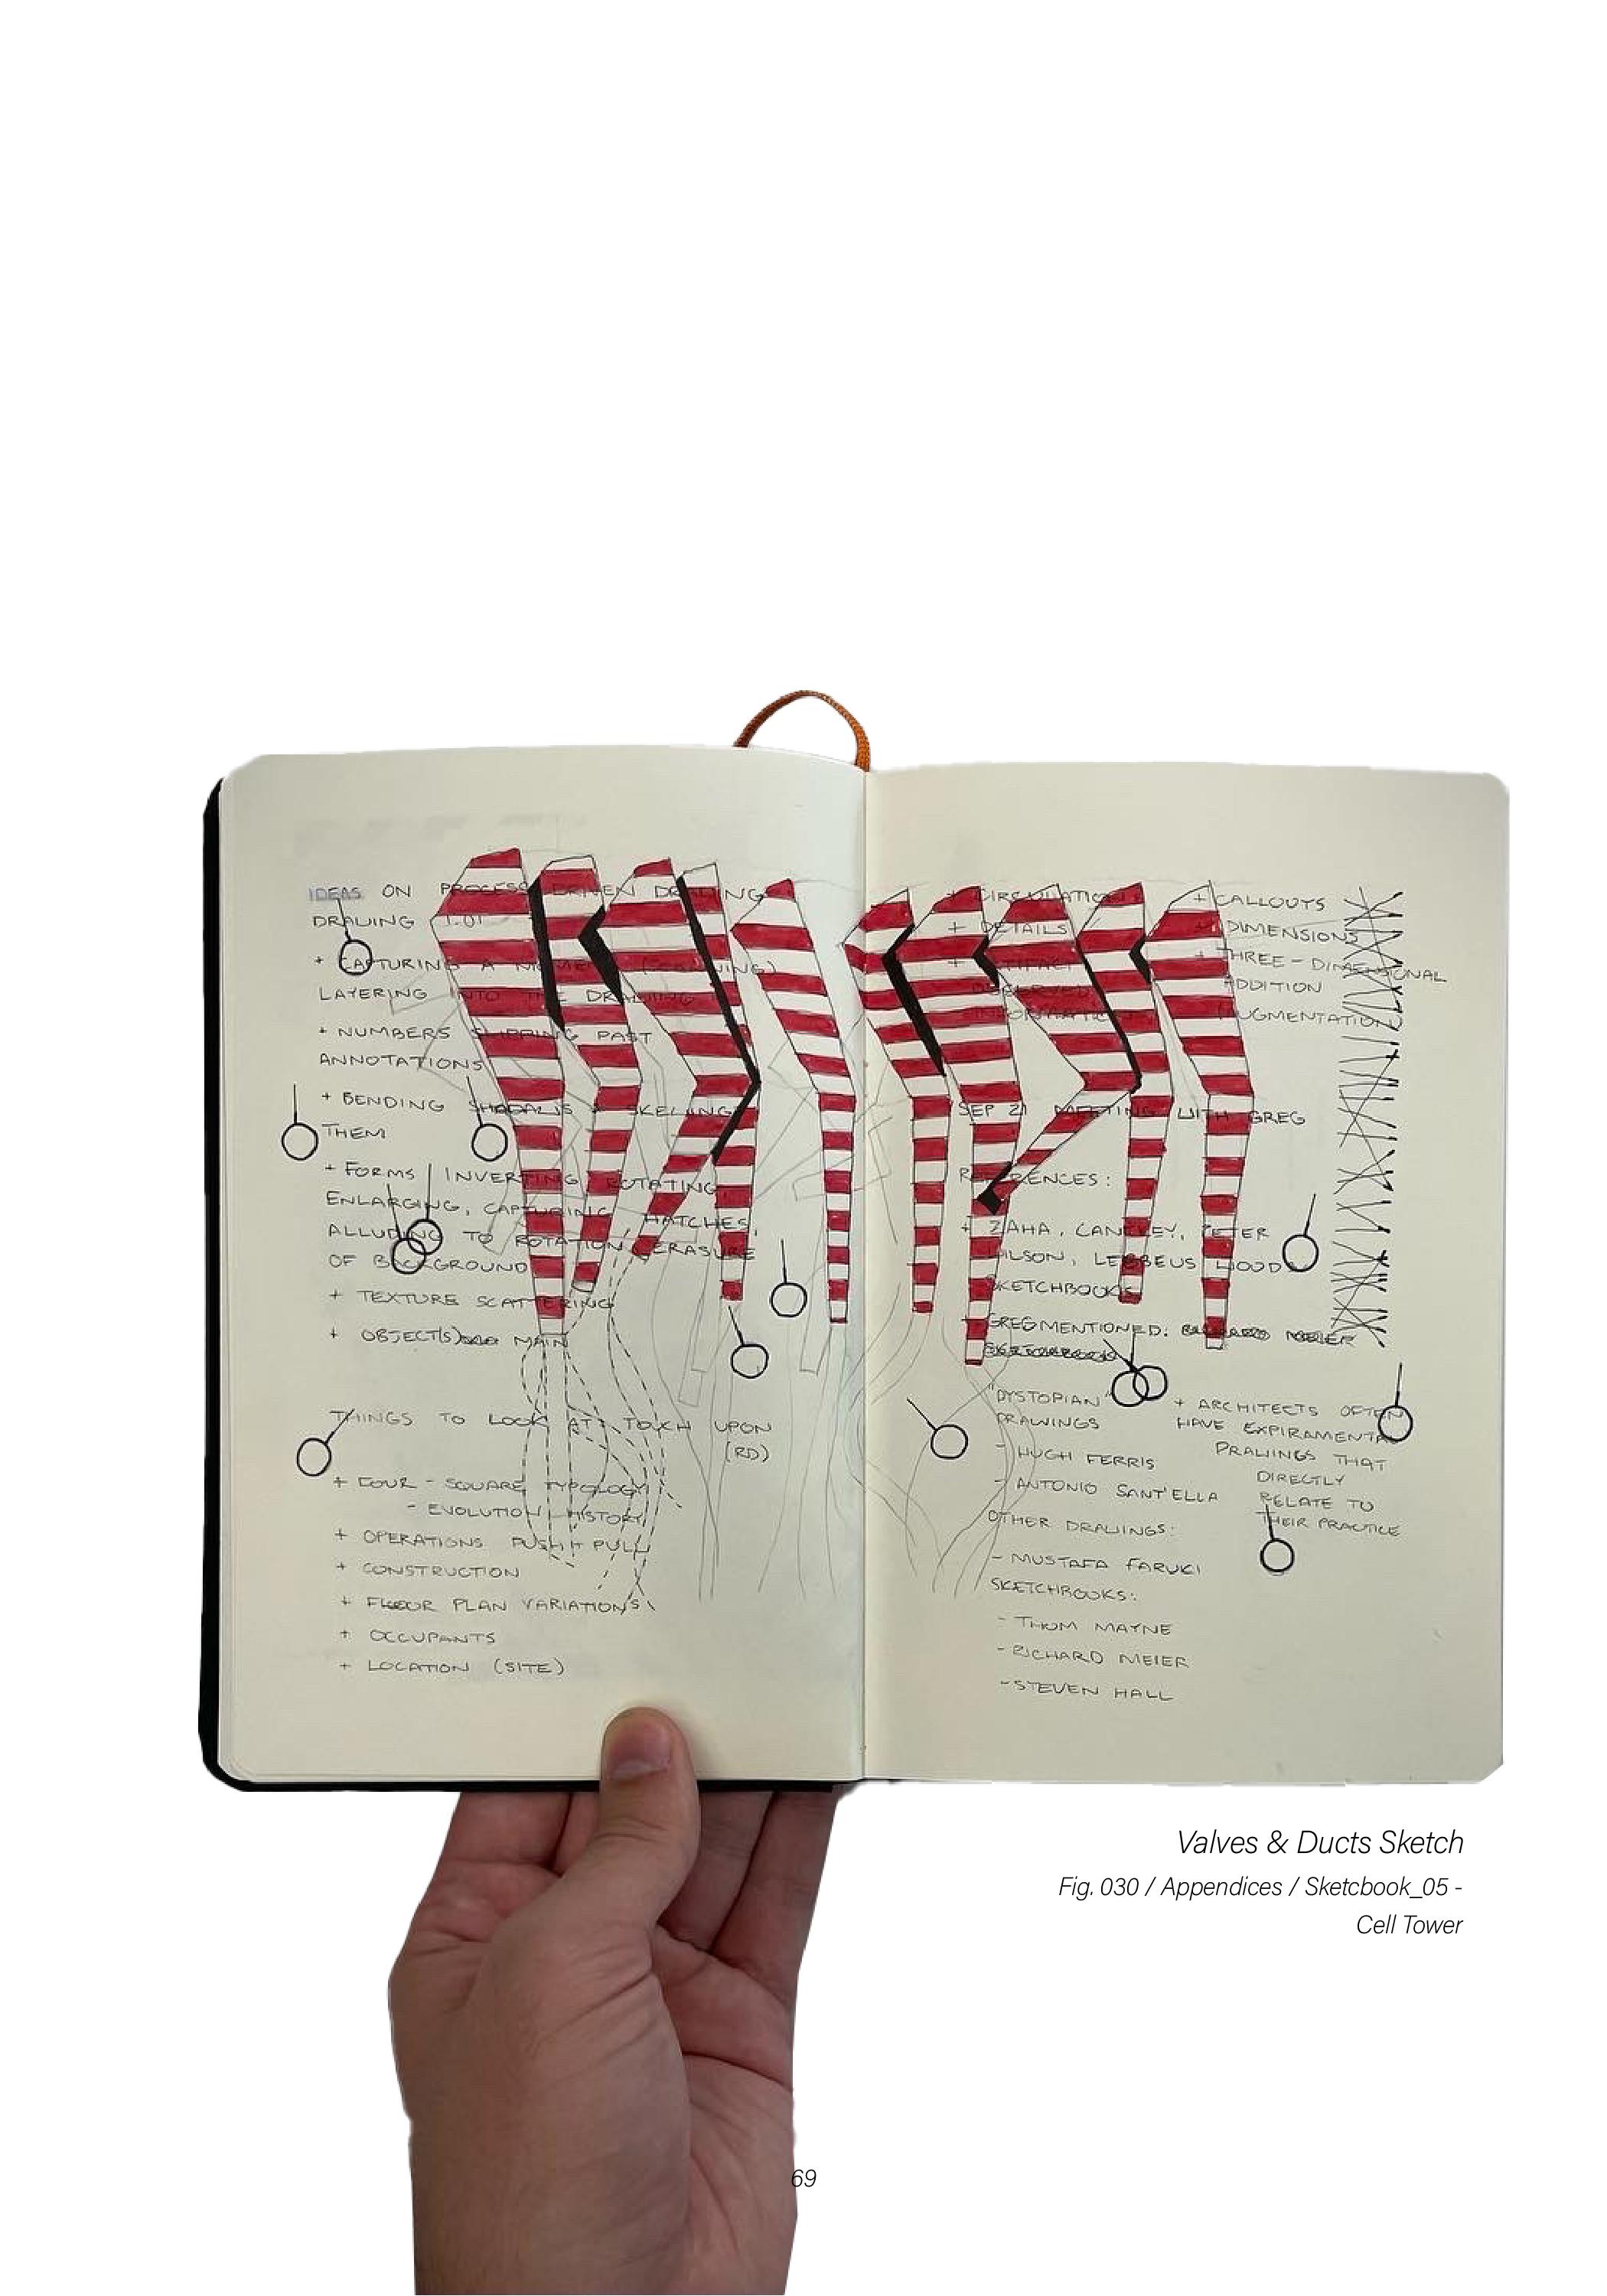 IDEAS ON PROCESS DRIVEN DRAWING
DRAWING 1.01
+ CAPTURING A MOMENT
LAYERING INTO THE DRAWING
+ NUMBERS SLIPPING PAST
ANNOTATIONS
+ BENDING SHADOWS + SKEWING
THEM
+ FORMS INVERTING, ROTATING,
ENLARGING, CAPTURING HATCHES,
ALLUDING TO ROTATION, ERASURE
OF BACKGROUND
+ TEXTURE SCATTERING
+ OBJECT(S) MAIN
THINGS TO LOOK AT + TOUCH UPON
(RD)
+ FOUR-SQUARE TYPOLOGY
- EVOLUTION, HISTORY
+ OPERATIONS PUSH + PULL
+ CONSTRUCTION
+ FLOOR PLAN VARIATIONS
+ OCCUPANTS
+ LOCATION (SITE)
+ CIRCULATION
+ DETAILS
+ ARTIFACT
OBSERVED
INFORMATION
+ CALLOUTS
+ DIMENSIONS
+ THREE-DIMENSIONAL
ADDITION
(AUGMENTATION)
SEP 21 MEETING WITH GREG
REFERENCES:
+ ZAHA, CANTLEY, PETER
WILSON, LEBBEUS WOODS
SKETCHBOOKS
+ GREG MENTIONED:
"DYSTOPIAN"
DRAWINGS
- HUGH FERRIS
- ANTONIO SANT'ELLA
OTHER DRAWINGS:
- MUSTAFA FARUKI
SKETCHBOOKS:
- THOM MAYNE
- RICHARD MEIER
- STEVEN HALL
+ ARCHITECTS OFTEN
HAVE EXPIRAMENTAL
DRAWINGS THAT
DIRECTLY
RELATE TO
THEIR PRACTICE
Valves & Ducts Sketch
Fig. 030 / Appendices / Sketcbook_05 -
Cell Tower
69